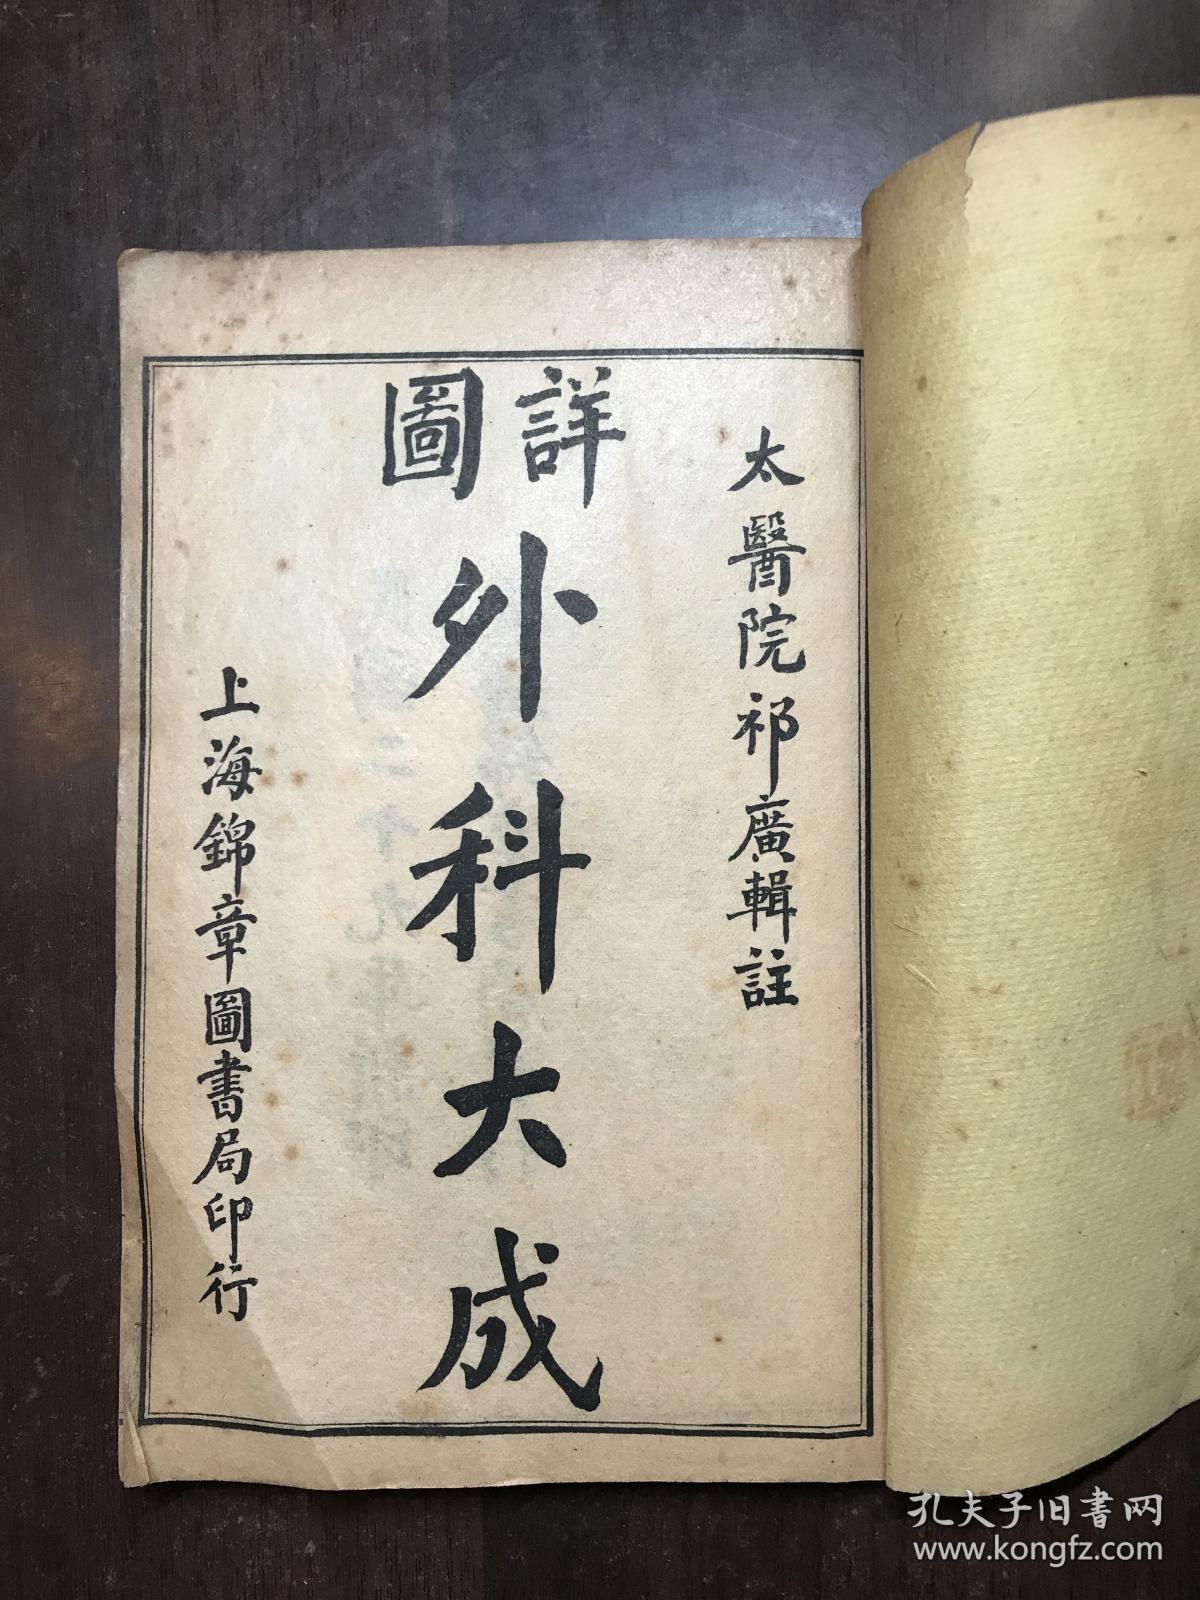 太醫院祁廣輯註
詳圖
外科大成
上海錦章圖書局印行
孔夫子旧书网
www.kongfz.com